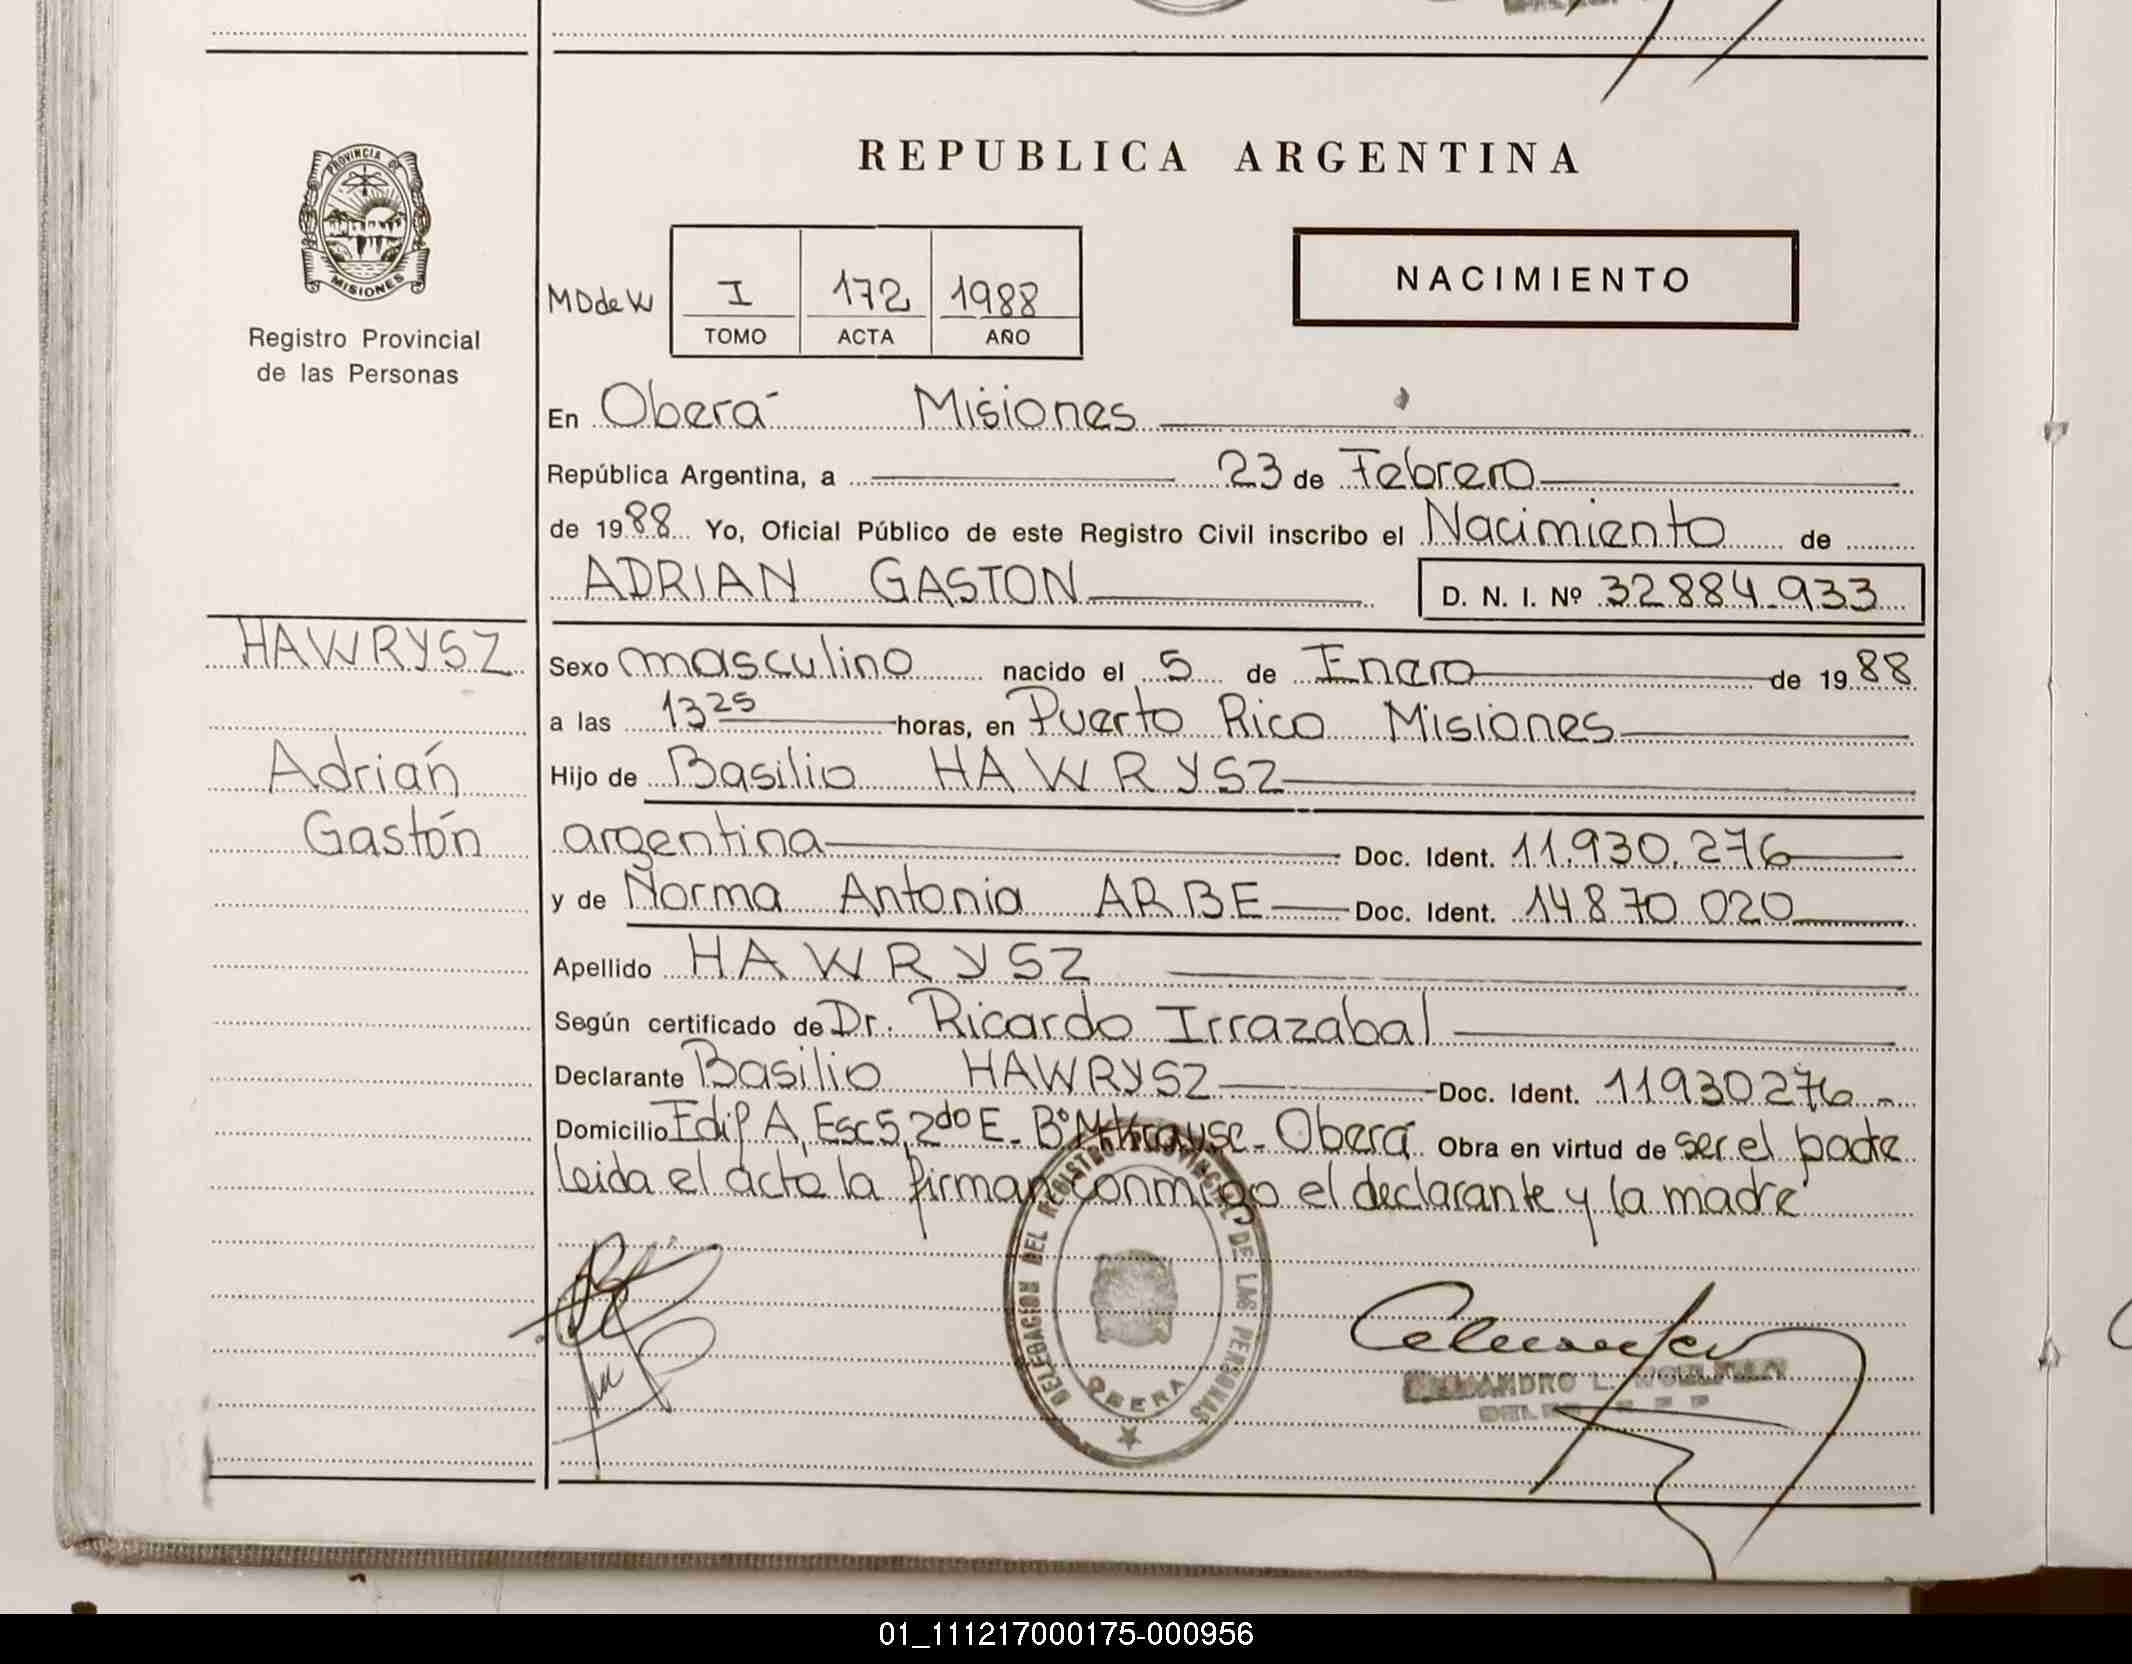 PROVINCIA DE
MISIONES
Registro Provincial
de las Personas
HAWRYSZ
Adrián
Gastón
REPUBLICA ARGENTINA
MDdeW
I 172 1988
TOMO ACTA AÑO
NACIMIENTO
En Oberá Misiones
República Argentina, a 23 de Febrero
de 1988 Yo, Oficial Público de este Registro Civil inscribo el Nacimiento de
ADRIAN GASTON D. N. I. Nº 32884.933
Sexo masculino nacido el 5 de Enero de 1988
a las 13 25 horas, en Puerto Rico Misiones
Hijo de Basilio HAWRYSZ
argentina Doc. Ident. 11.930.276
y de Norma Antonia ARBE Doc. Ident. 14870020
Apellido HAWRYSZ
Según certificado de Dr. Ricardo Irrazabal
Declarante Basilio HAWRYSZ Doc. Ident. 11930276
Domicilio Edif A, Esc 5, 2do E - Bº Krause - Oberá Obra en virtud de ser el padre
leida el acta la firman conmigo el declarante y la madre
DELEGACION DEL REGISTRO PROVINCIAL DE LAS PERSONAS
OBERA
01_111217000175-000956